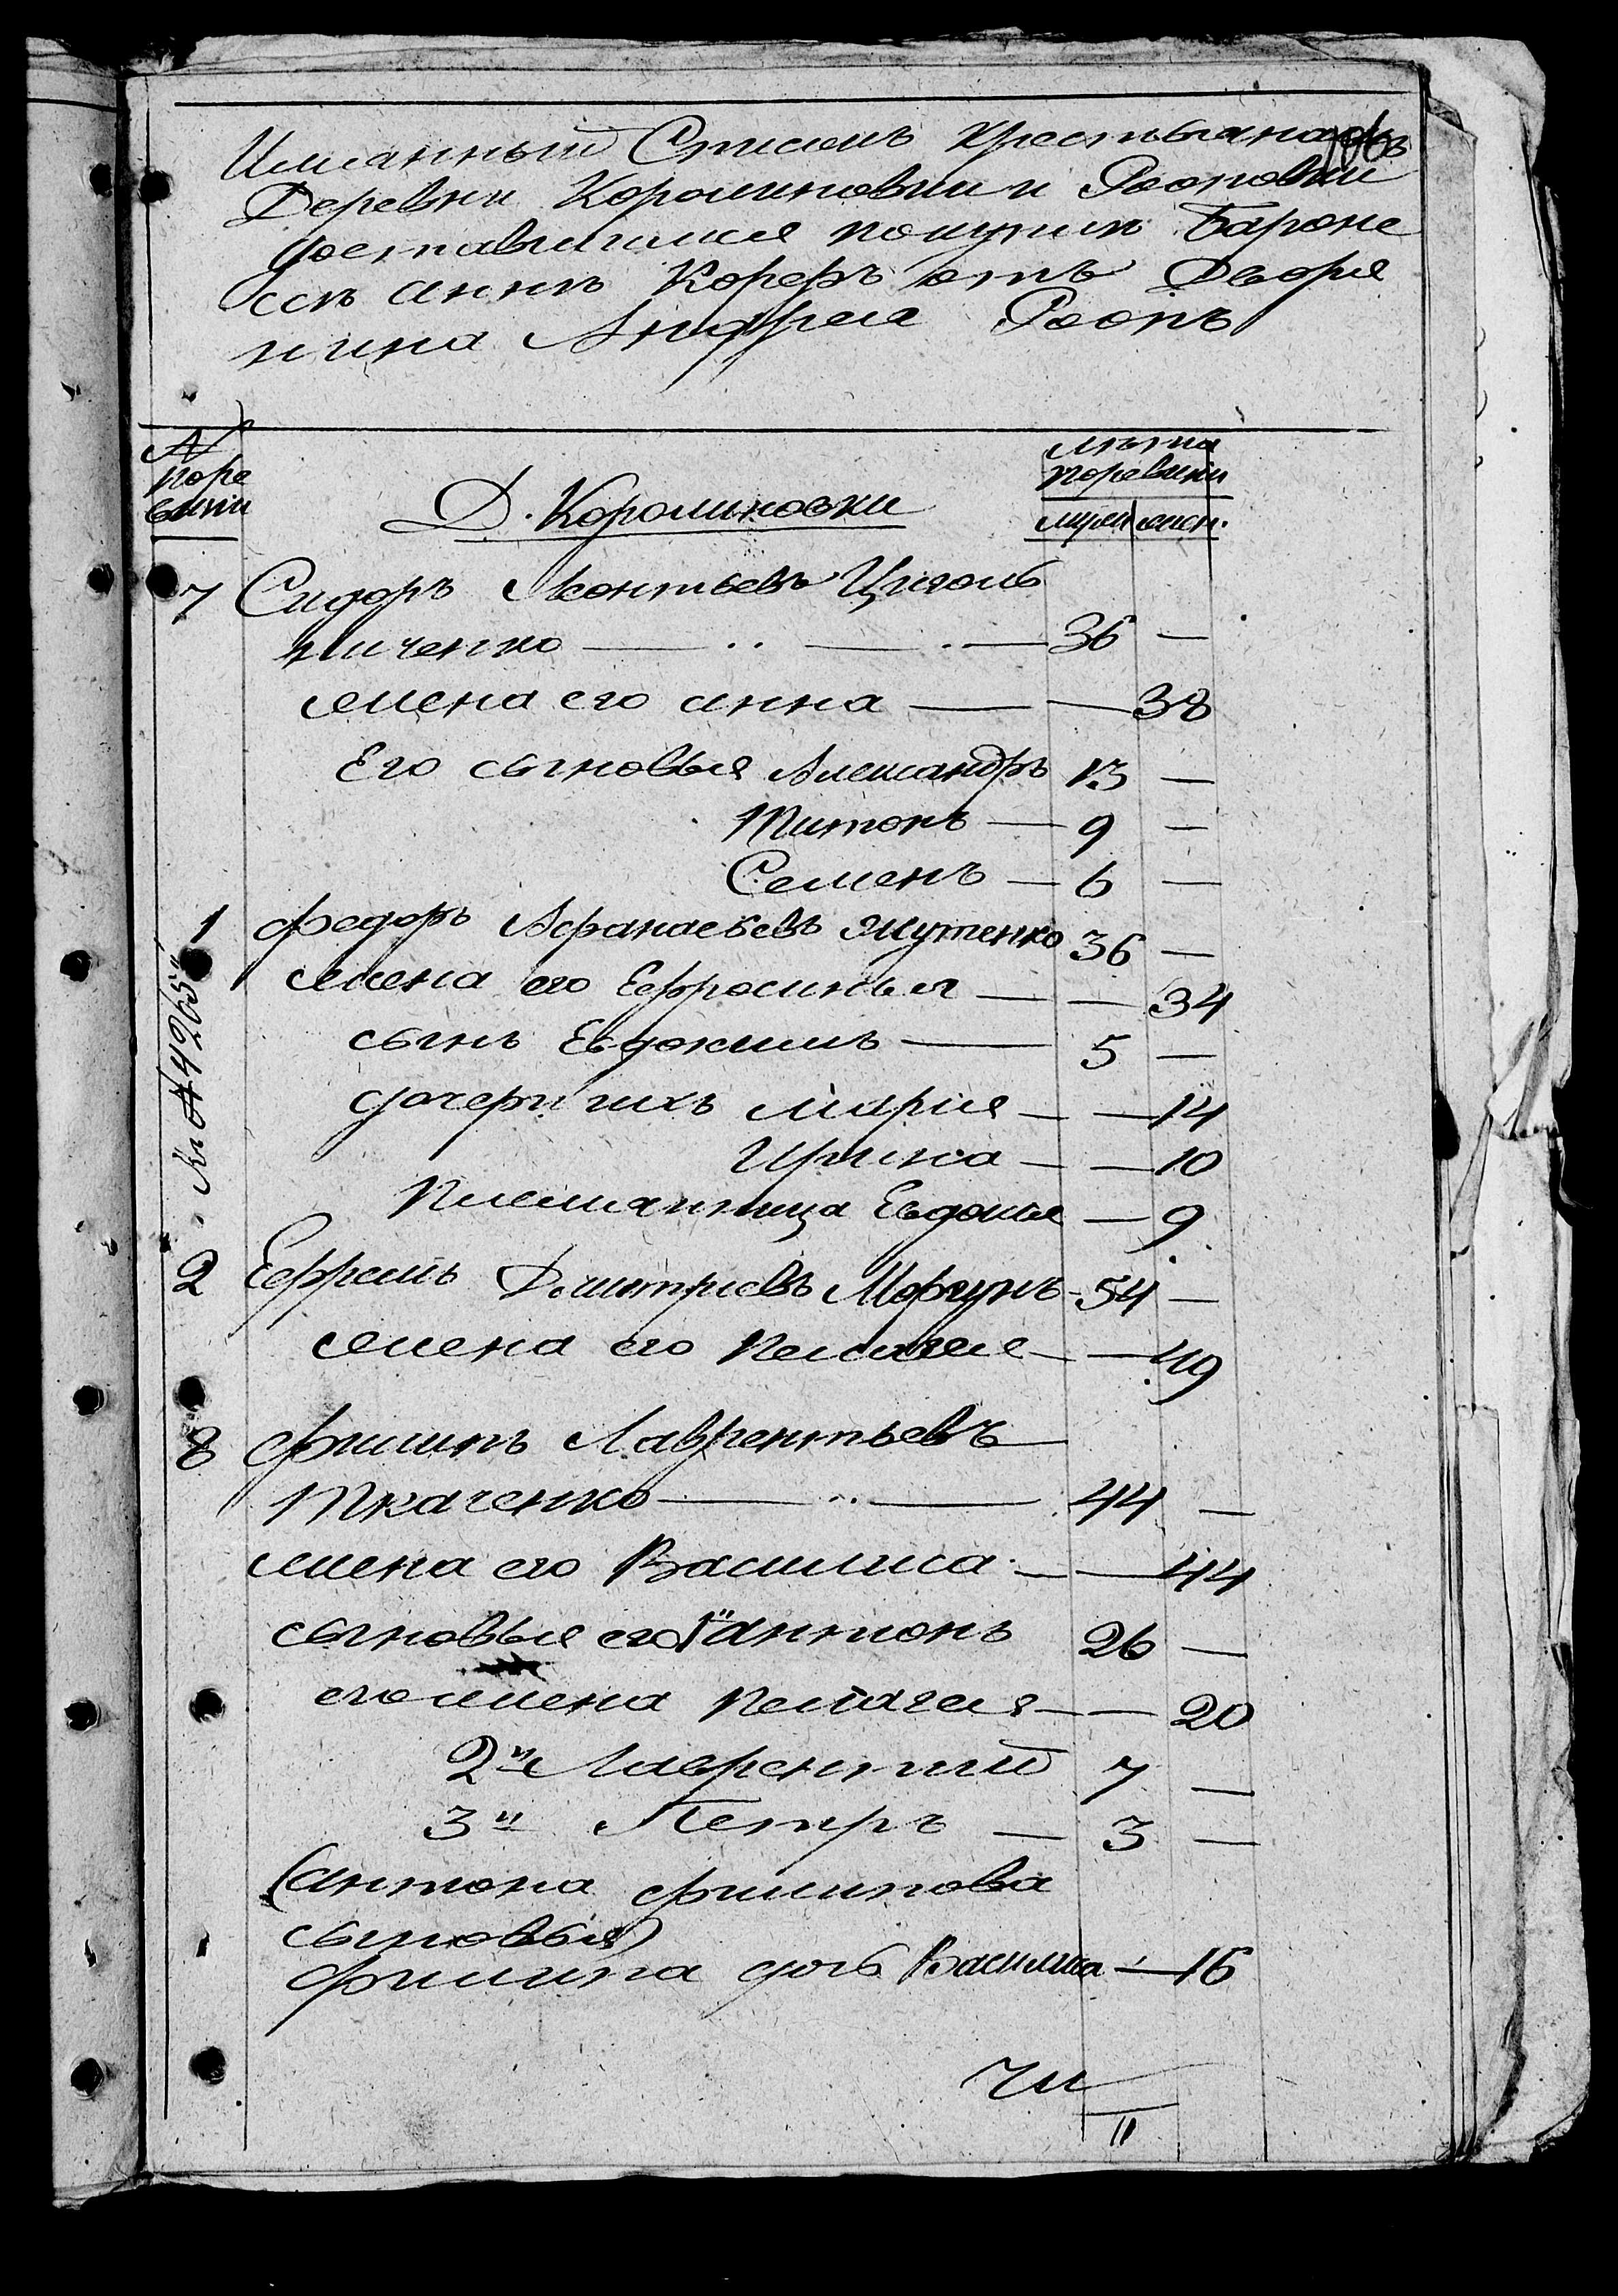 Именный Списокъ крестьянамъ
Деревни Королиновки и Рооповки
доставшимся покупки Бароне
ссѣ Аннѣ Корфъ отъ Дворя
нина Андрея Роопъ
№
поре
визіи
Д. Королиновки
лѣта
поревизіи
муж жен.
7 Сидоръ Леонтьевъ Циголь
ниченко — 36 —
жена его Анна — 38
Его сыновья Александръ 13 —
Титонъ — 9 —
Семенъ — 6 —
1 Федоръ Афанасьевъ Жутенко 36 —
жена его Ефросинья — — 34
сынъ Евдокимъ — 5 —
дочери ихъ Марія — — 14
Ирина — — 10
Племянница Евдокія — 9
2 Ефремъ Дмитріевъ Моргунъ - 54 —
жена его Пелагея — — 49
8 Филипъ Лаврентьевъ
Ткаченко — 44 —
жена его Василиса — — 44
сыновья его 1й Антонъ 26 —
его жена Пелагея — — 20
2й Лаврентий 7 —
3й Петръ — 3 —
(Антона Филипова
сыновья)
Филипа дочь Василиса — 16
11